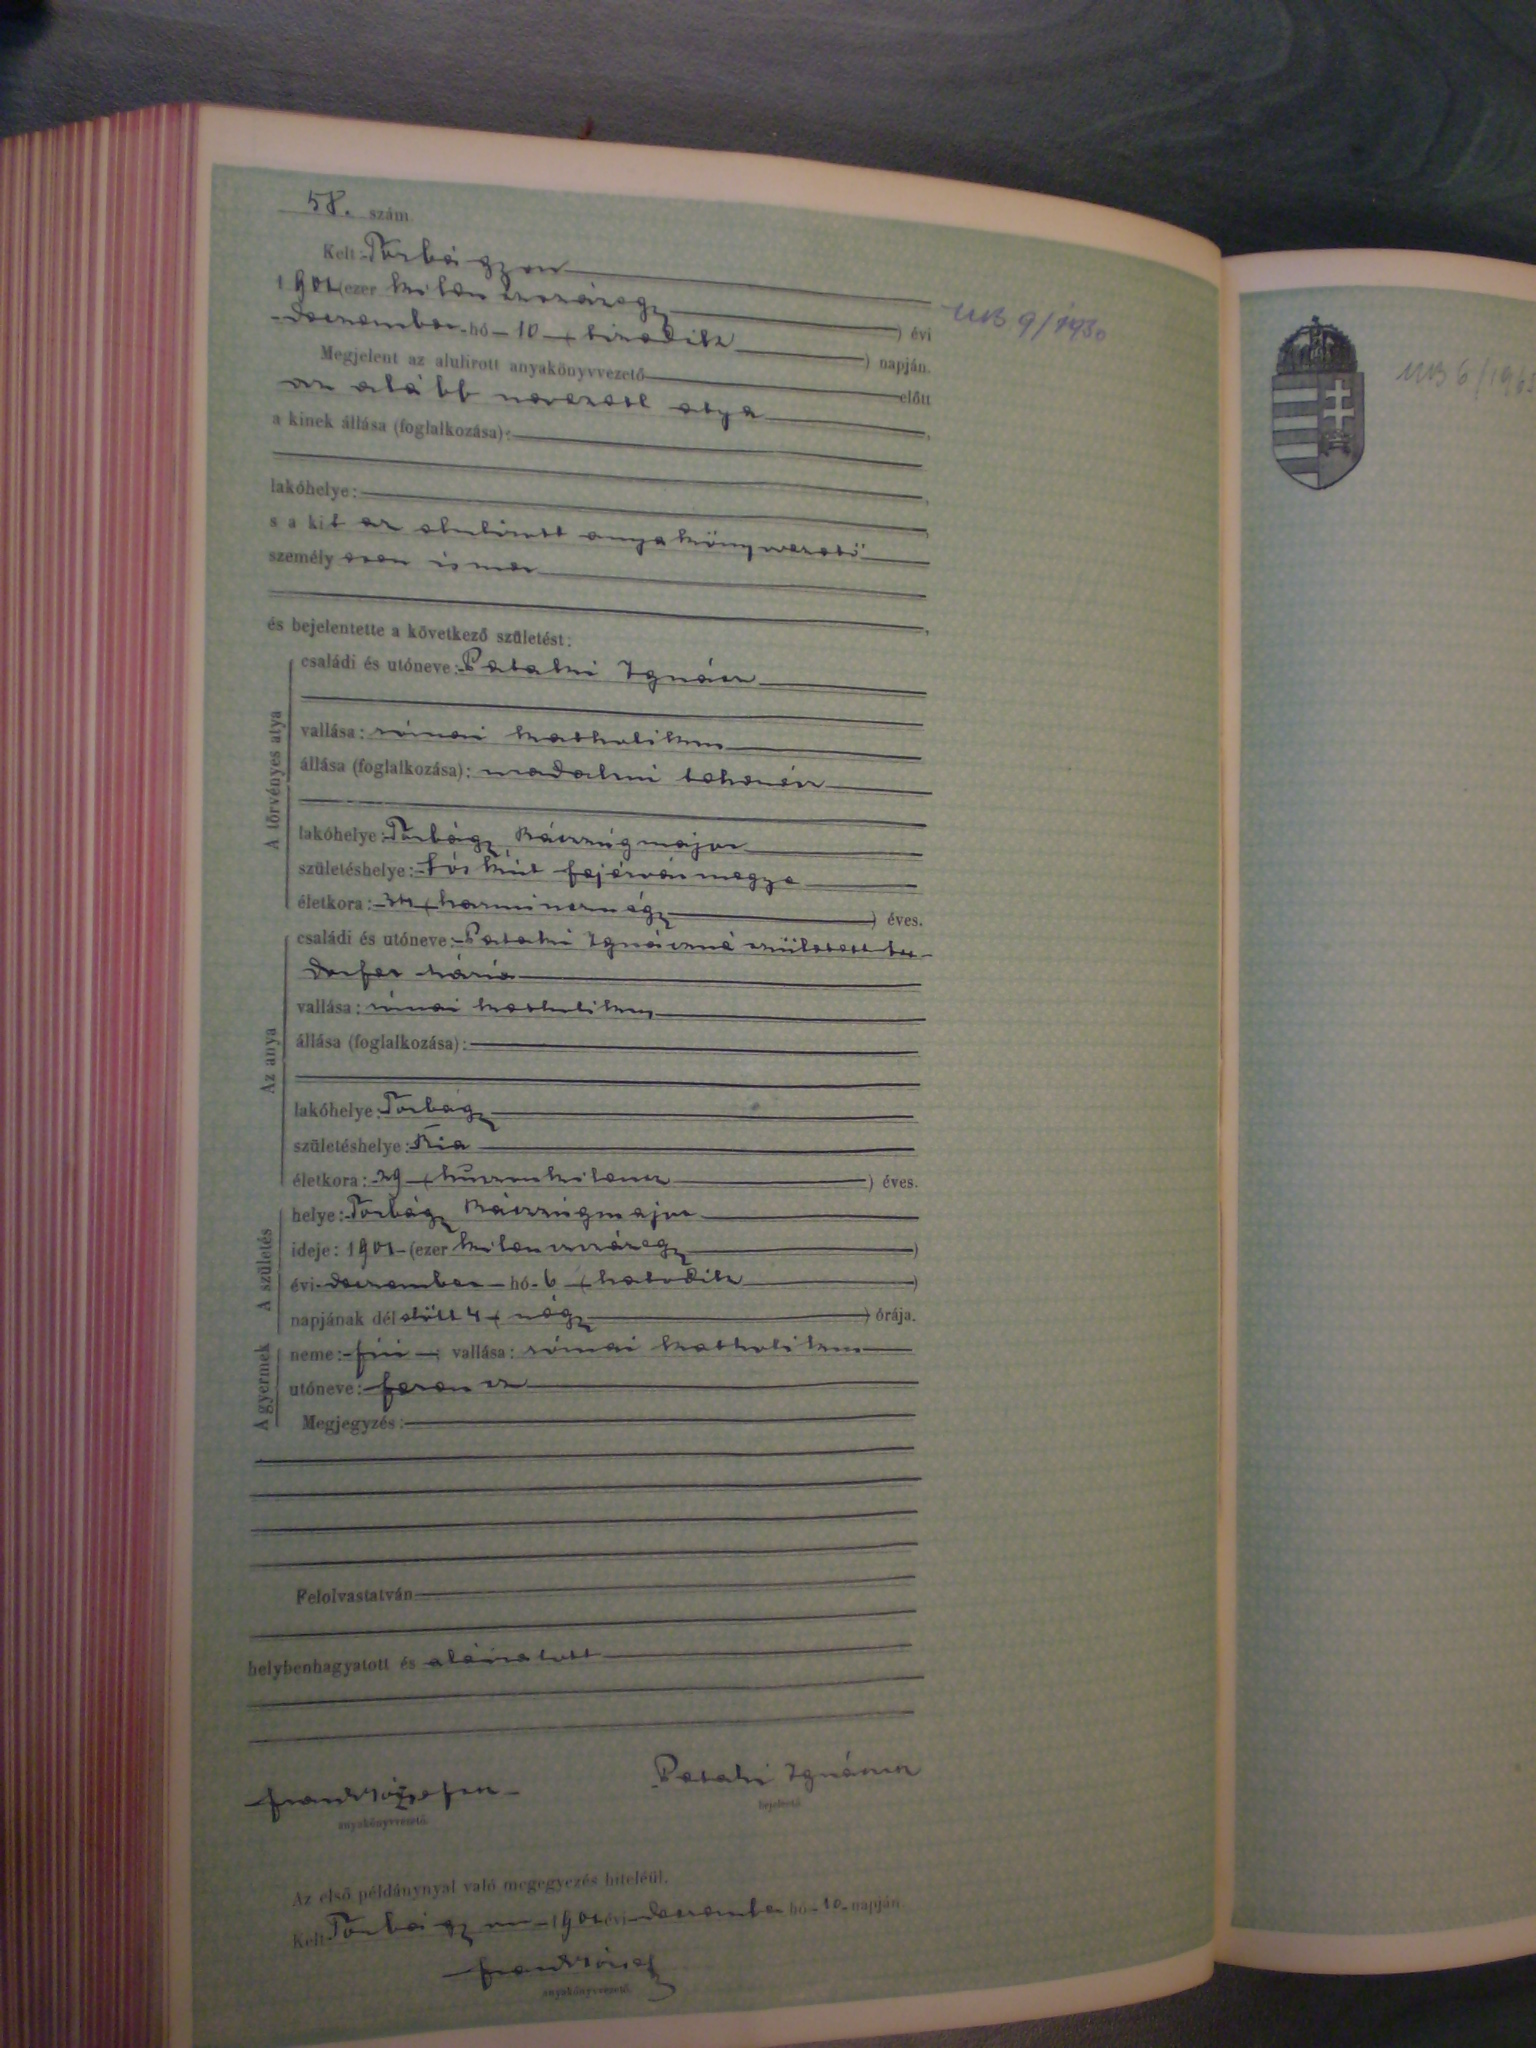 58. szám
Kelt: Torbágyon
1901 (ezer kilenczszázegy ) évi
deczember hó 10 ( tizedik ) napján.
Megjelent az alulirott anyakönyvvezető előtt
az alább nevezett atya,
a kinek állása (foglalkozása):
lakóhelye:
s a kit az alulirott anyakönyvvezető
személyesen ismer
és bejelentette a következő születést:
A törvényes atya
családi és utóneve: Pataki Ignácz
vallása: római katholikus
állása (foglalkozása): uradalmi tehenész
lakóhelye: Torbágy
születéshelye: Sóskút fejérvármegye
életkora: 34 ( harmincznégy ) éves.
Az anya
családi és utóneve: Pataki Ignáczné született
Mária
vallása: római katholikus
állása (foglalkozása):
lakóhelye: Torbágy
születéshelye: Bia
életkora: 29 ( huszonkilencz ) éves.
A születés
helye: Torbágy
ideje: 1901 (ezer kilenczszázegy )
évi deczember hó 6 ( hatodik )
napjának dél előtt 4 ( négy ) órája.
A gyermek
neme: fiú ; vallása: római katholikus
utóneve: ferencz
Megjegyzés:
Felolvastatván
helybenhagyatott és aláiratott
Pataki Ignácz
anyakönyvvezető
bejelentő
Az első példánynyal való megegyezés hiteléül.
Kelt Torbágyon 1901 évi deczember hó 10. napján
anyakönyvvezető
UB 9/1930
UB 6/19